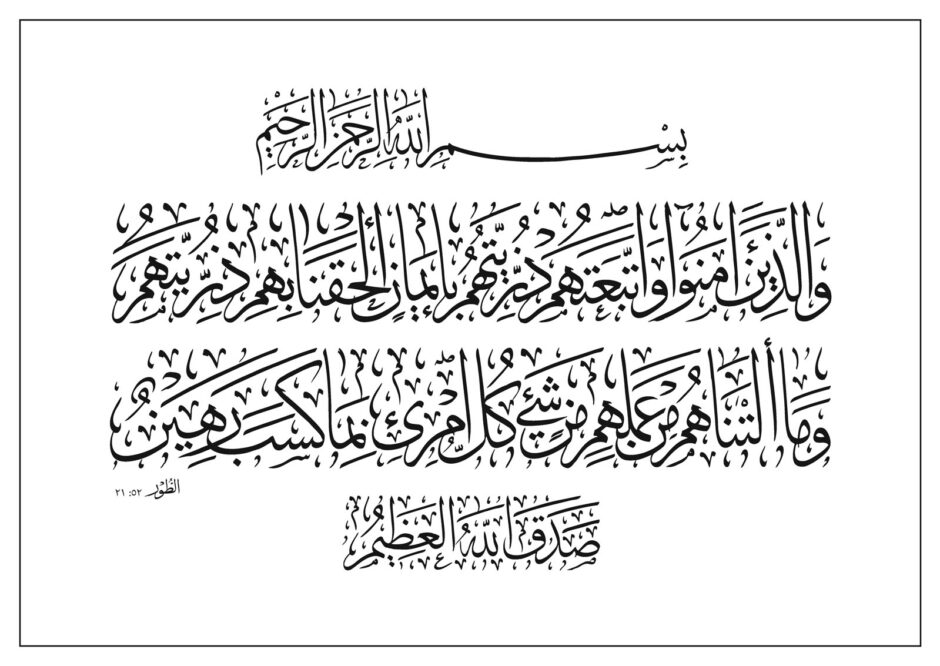 بِسْمِ اللهِ الرَّحْمٰنِ الرَّحِيْمِ
وَالَّذِيْنَ اٰمَنُوْا وَاتَّبَعَتْهُمْ ذُرِّيَّتُهُمْ بِإِيْمَانٍ أَلْحَقْنَا بِهِمْ ذُرِّيَّتَهُمْ
وَمَا أَلَتْنَاهُمْ مِنْ عَمَلِهِمْ مِنْ شَيْءٍ كُلُّ امْرِئٍ بِمَا كَسَبَ رَهِيْنٌ
الطُّوْر ٥٢: ٢١
صَدَقَ اللهُ الْعَظِيْمُ